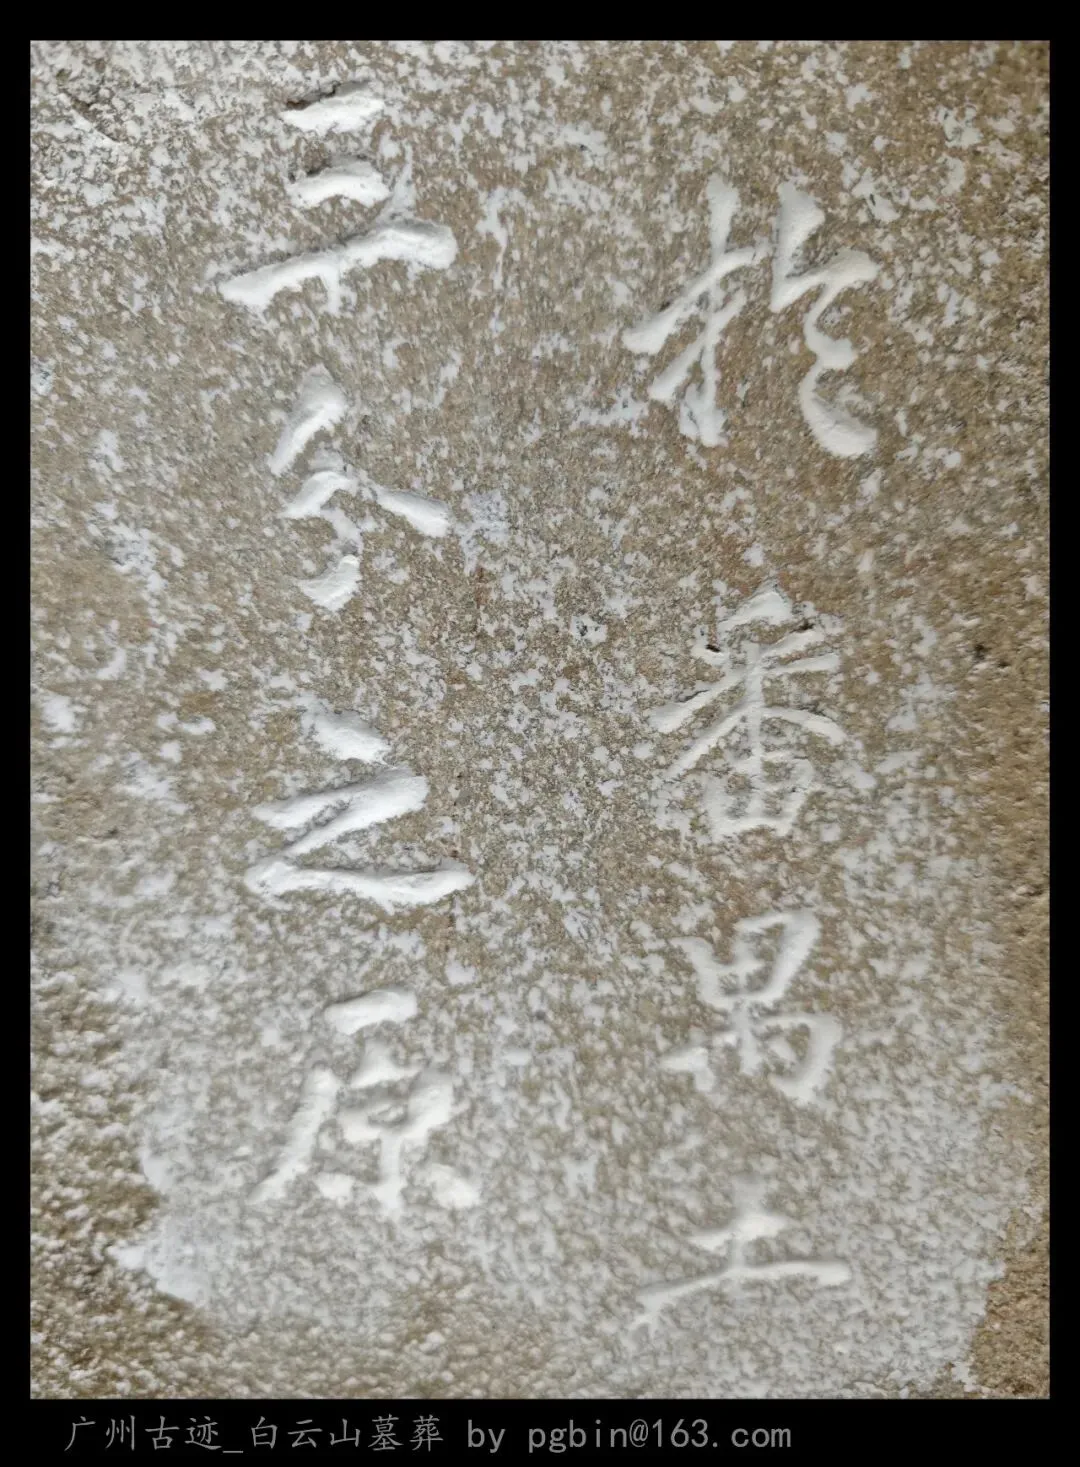 扵番禺土
三之原
广州古迹_白云山墓葬 by pgbin@163.com